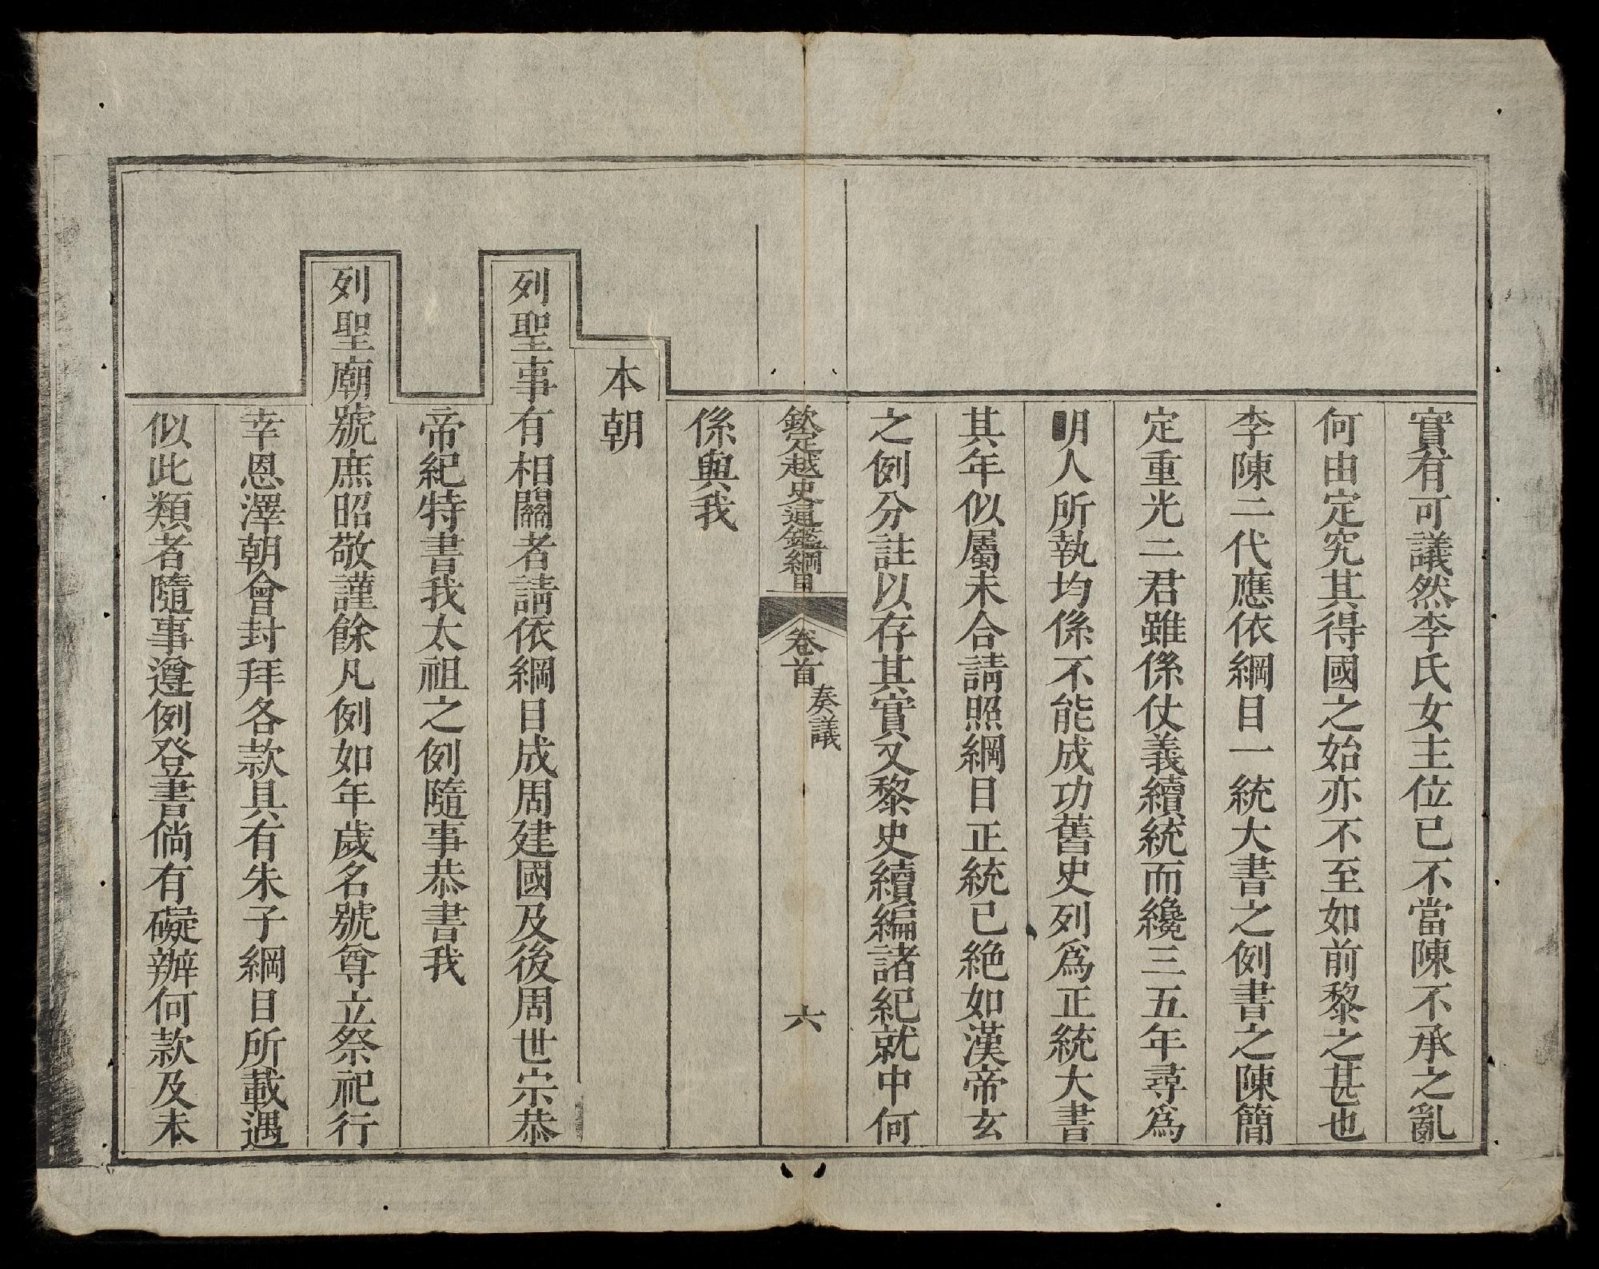 實有可議然李氏女主位已不當陳不承之亂
何由定究其得國之始亦不至如前黎之甚也
李陳二代應依綱目一統大書之例書之陳簡
定重光二君雖係仗義續統而纔三五年尋爲
明人所執均係不能成功舊史列爲正統大書
其年似屬未合請照綱目正統已絶如漢帝玄
之例分註以存其實又黎史續編諸紀就中何
欽定越史通鑑綱目
卷首
奏議
六
係與我
本朝
列聖事有相關者請依綱目成周建國及後周世宗恭
帝紀特書我太祖之例隨事恭書我
列聖廟號庶昭敬謹餘凡例如年歲名號尊立祭祀行
幸恩澤朝會封拜各款具有朱子綱目所載遇
似此類者隨事遵例登書倘有礙辦何款及未